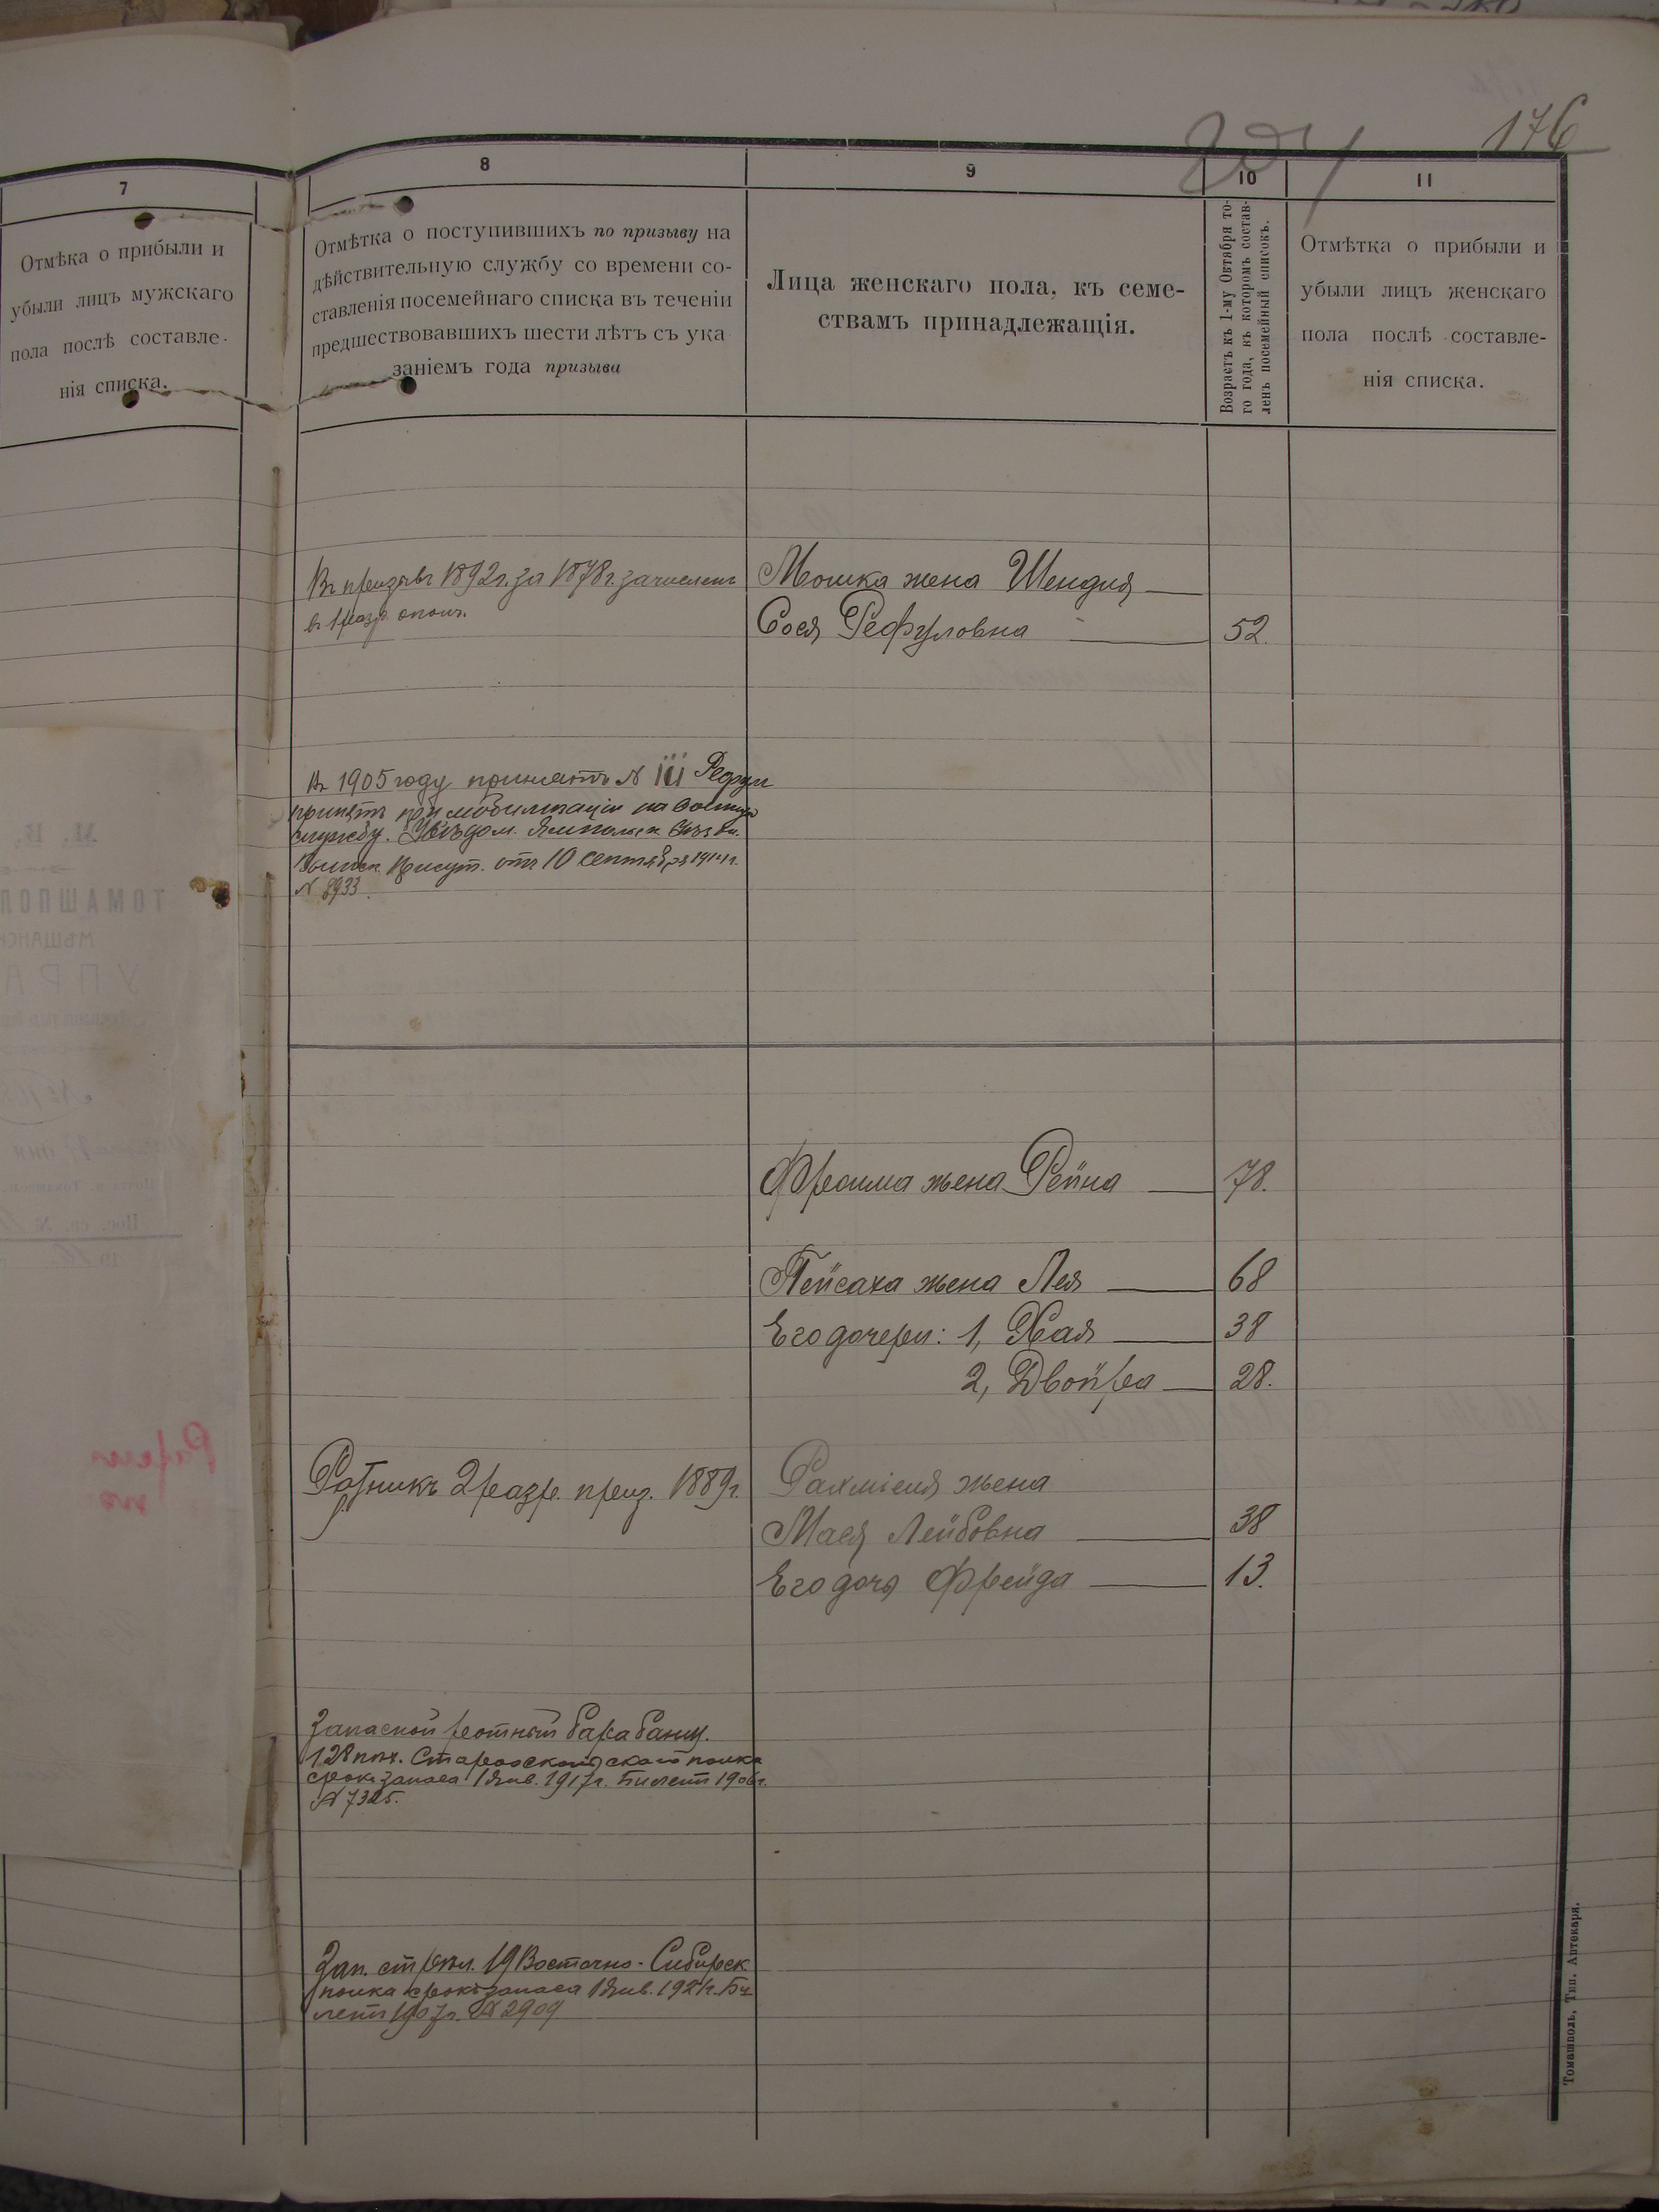 176
204
7
Отмѣка о прибыли и
убыли лицъ мужскаго
пола послѣ составле-
нія списка.
8
Отмѣтка о поступившихъ по призыву на
дѣйствительную службу со времени со-
ставленія посемейнаго списка въ теченіи
предшествовавшихъ шести лѣтъ съ ука
заніемъ года призыва
9
Лица женскаго пола, къ семе-
ствамъ принадлежащія.
10
Возрастъ къ 1-му Октября то-
го года, къ которомъ состав-
ленъ посемейный списокъ.
11
Отмѣтка о прибыли и
убыли лицъ женскаго
пола послѣ составле-
нія списка.
Въ призывъ 1892г. за 1878г. зачисленъ
въ 1 разр. ополч.
Мошка жена Шендля
Сося Рефуловна 52.
Въ 1905 году принятъ №
принятъ при мобилизаціи на военную
службу. Увѣдом. Ямпольск. Уѣздн.
Воинск. Присут. отъ 10 сентября 1914г.
№ 8933.
Фроима жена Рейна 78.
Пейсаха жена Лея 68
Его дочери: 1, Хая 38
2, Двойра 28.
Ратникъ 2 разр. приз. 1889г.
Рахміеля жена
Мася Лейбовна 38
Его дочь Фрейда 13.
Запасной ротный барабанщ.
128 пѣх. Старооскольскаго полка
срокъ запаса 1 Янв. 1917г. Билетъ 1906г.
№ 7325.
Зап. стрѣл. 19 Восточно-Сибирск
полка срокъ запаса 1 Янв. 1921г. Би
летъ 1907г. № 2909
Томашполь, Тип. Аптекаря.